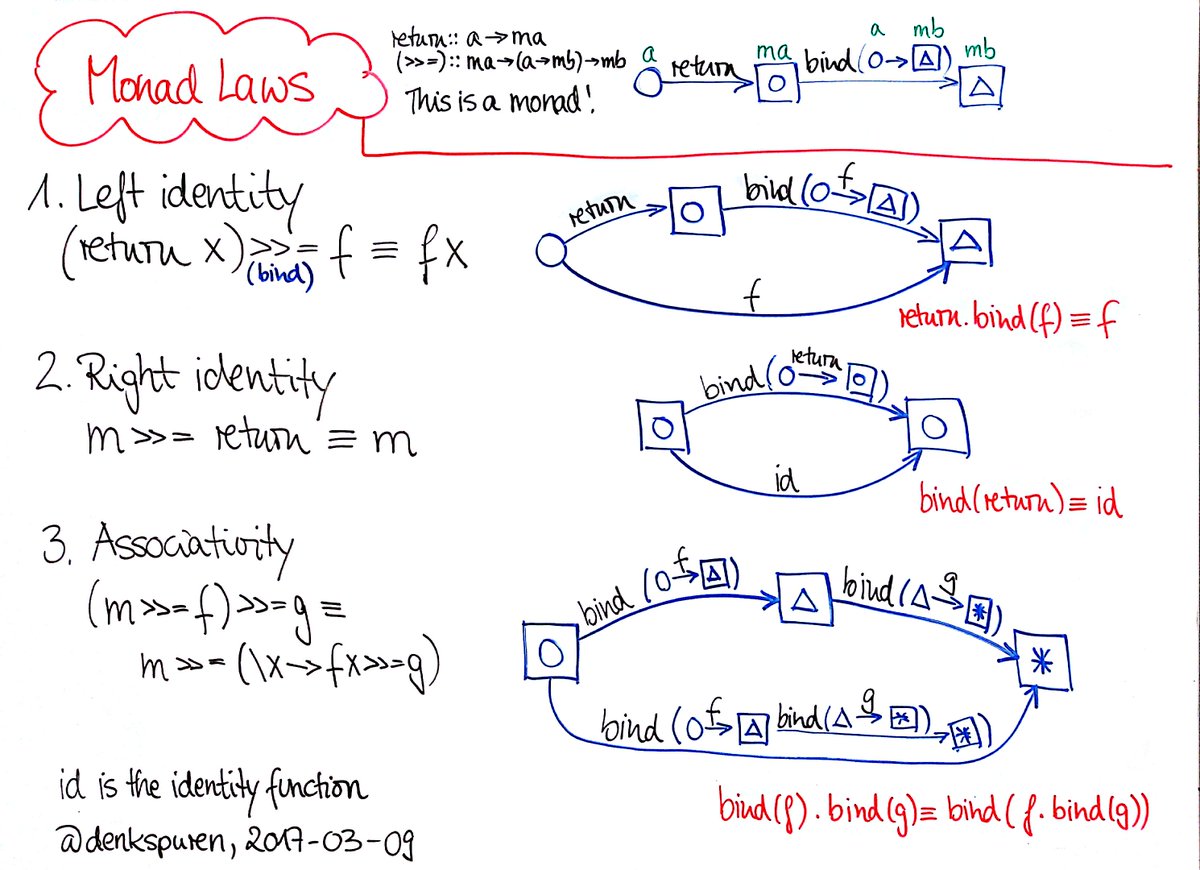 Monad Laws
return:: a→ma
(>>=):: ma→(a→mb)→mb
This is a monad!
a return ma bind( a → mb ) mb
1. Left identity
(return x) >>= f ≡ f x
(bind)
return bind( f )
f
return.bind(f) ≡ f
2. Right identity
m >>= return ≡ m
bind( return )
id
bind(return) ≡ id
3. Associativity
(m >>= f) >>= g ≡
m >>= (\x→f x >>= g)
bind ( f → ) bind( g → * )
*
bind ( f → bind( g → * ) → * )
bind(f).bind(g) ≡ bind(f.bind(g))
id is the identity function
@denkspuren, 2017-03-09